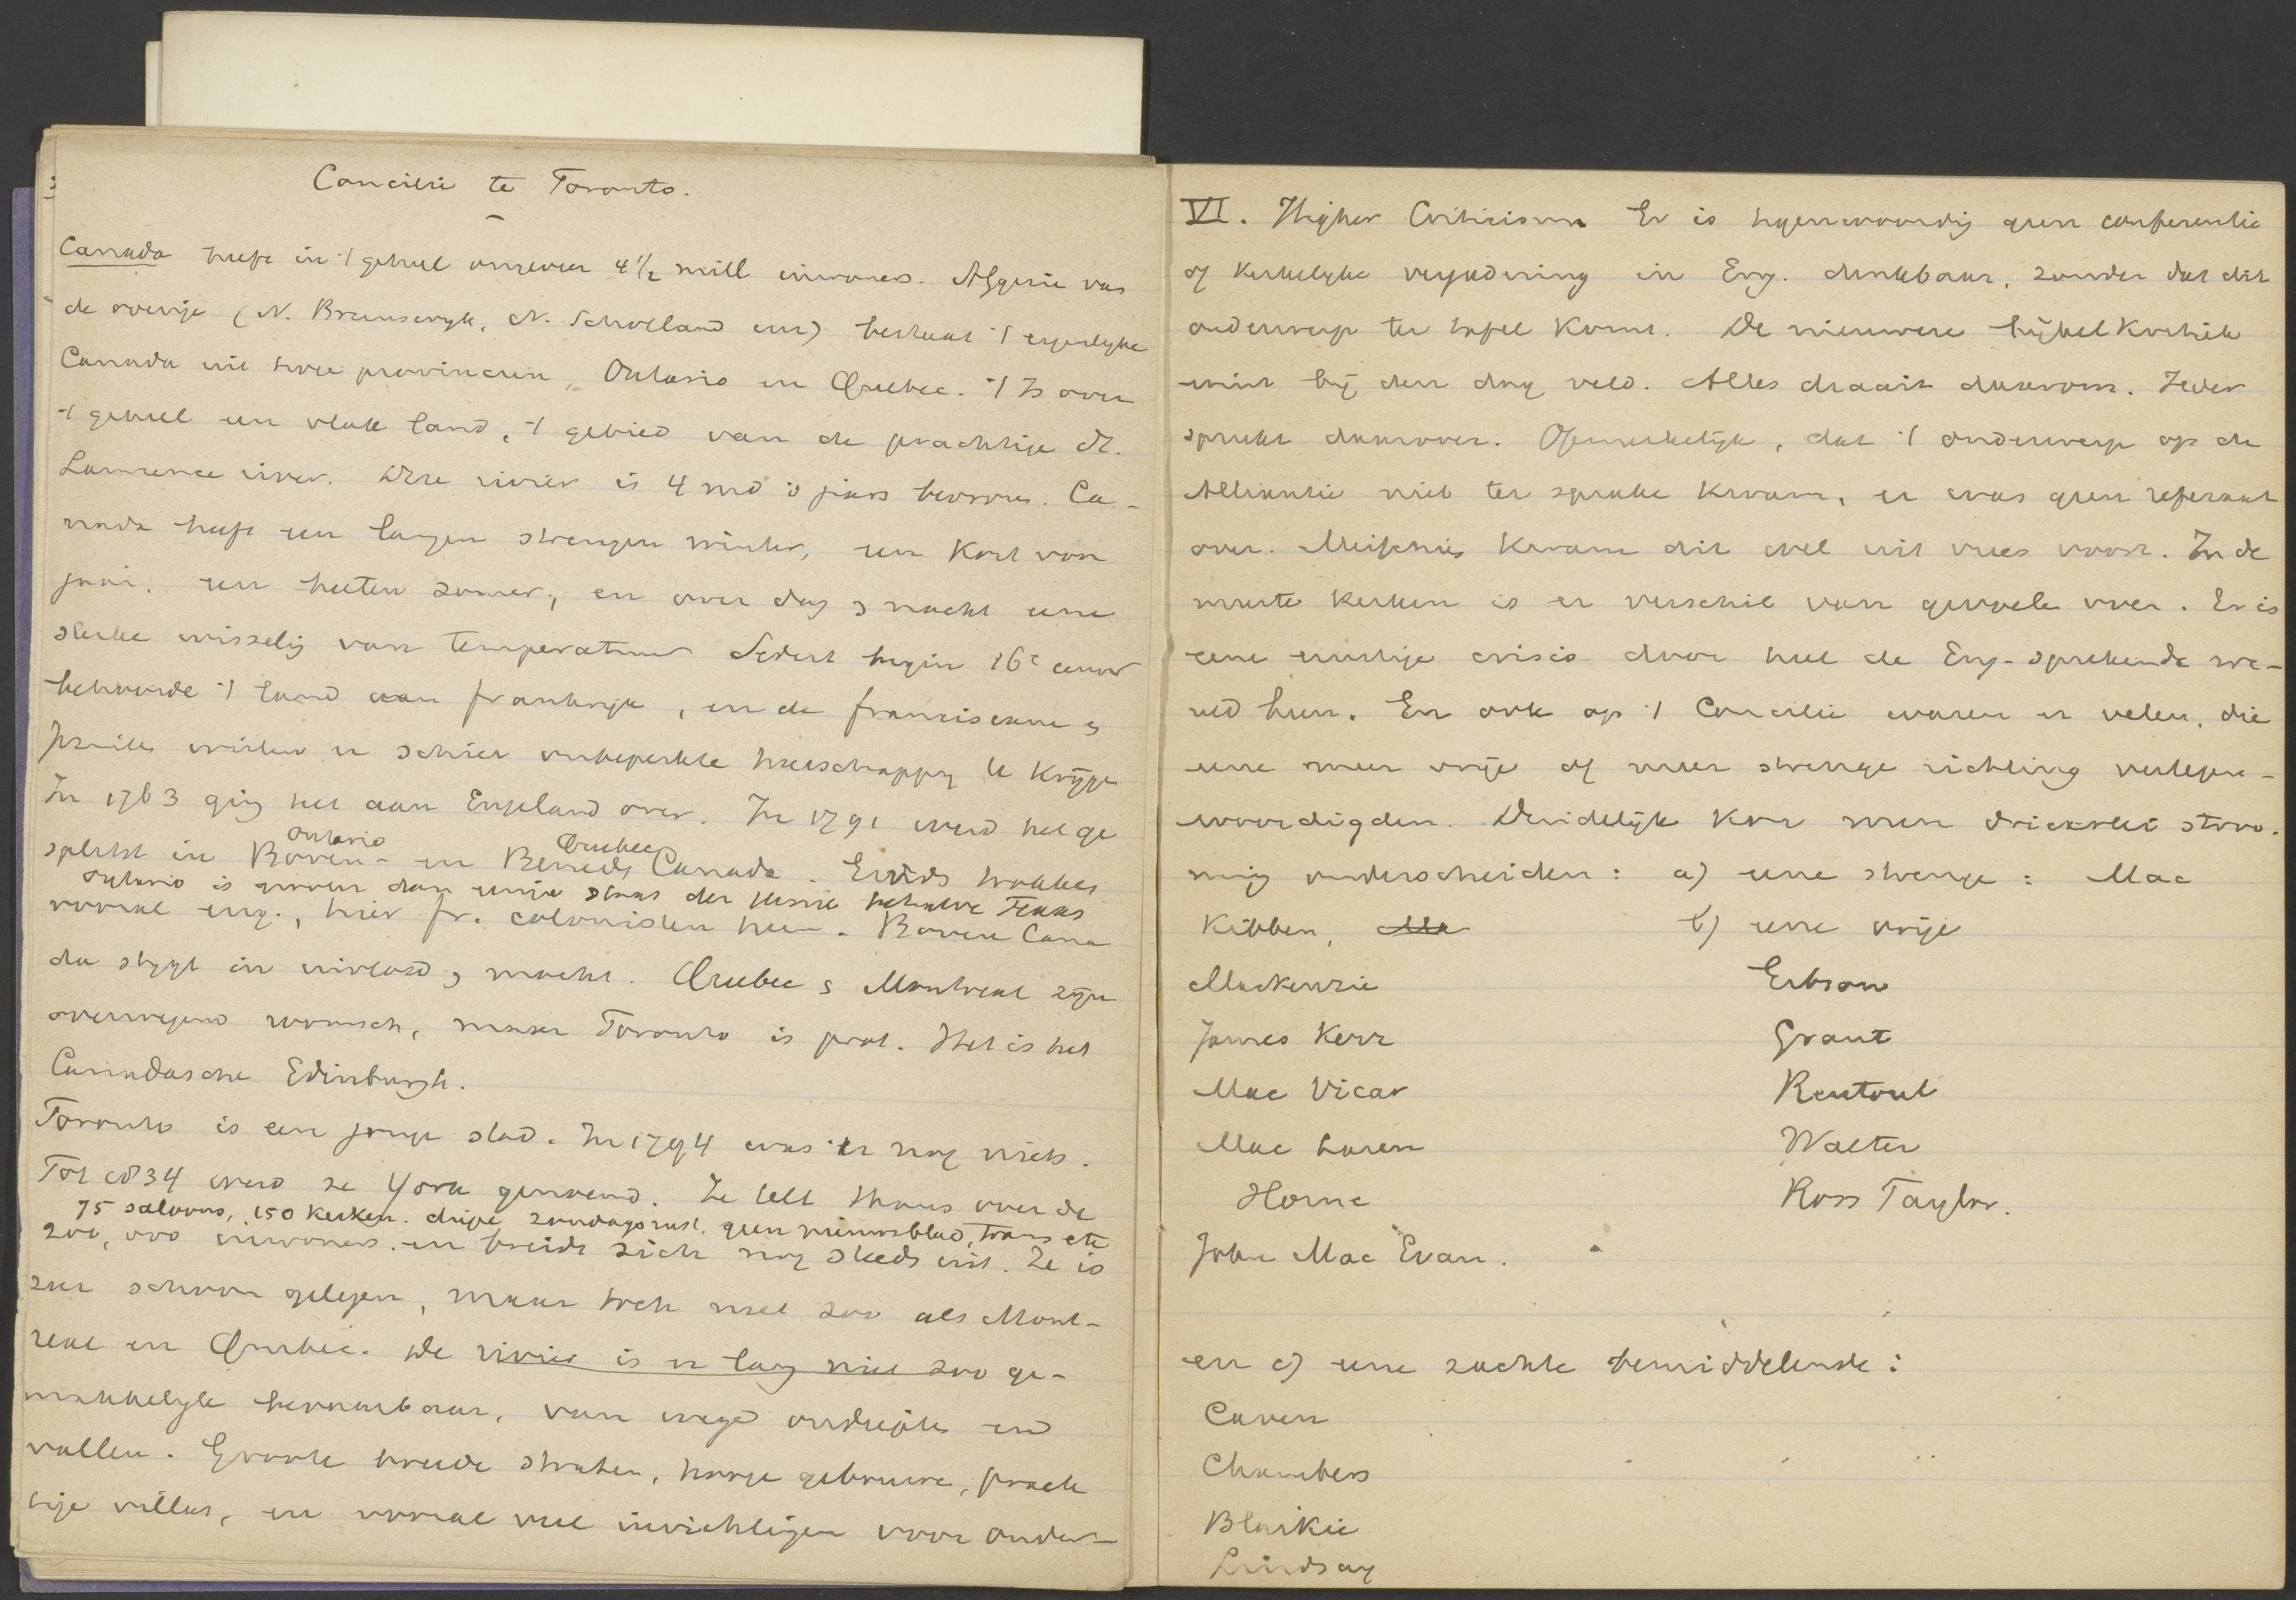 Concilie te Toronto.
Canada heeft in 't geheel ongeveer 4 1/2 mill inwoners. Afgezien van
de overige (N. Brunswyk, N. Schotland enz) bestaat 't eigenlyke
Canada uit twee provincien, Ontario en Quebec. 't Is over
't geheel een vlak land, 't gebied van de prachtige St.
Lawrence river. Deze rivier is 4 md 's jaars bevroren. Ca-
nada heeft een langen strengen winter, een kort voor
jaar, een heeten zomer, en over dag & nacht eene
sterke wisselig van temperatuur Sedert begin 16e eeuw
behoorde 't land aan frankryk, en de franciscane &
Jezuites wisten er schier onbeperkte heerschappy te krijge
In 1763 ging het aan Engeland over. In 1791 werd het ge
Ontario Quebec
splitst in Boven- en Beneds Canada. Ginds trokken
Ontario is grooter dan eenige staat der Unie behalve Texas
vooral eng., hier fr. colonisten heen. Boven Cana
da stygt in invloed & macht. Quebec & Montreal zyn
overwegend roomsch, maar Toronto is prot. Het is het
Canadasche Edinburgh.
Toronto is een jonge stad. In 1794 was er nog niets.
Tot 1834 werd ze York genoemd. Ze telt thans over de
75 saloons, 150 kerken. zondagsrust, geen nieuwsblad, trams etc
200,000 inwoners. en breidt zich nog steeds uit. Ze is
zeer schoon gelegen, maar toch niet zoo als Mont-
real en Quebec. De rivier is er lang niet zoo ge-
makkelyk bevaarbaar, van wege ondiepte en
vallen. Groote breede straten, hooge gebouwen, prach
tige villas, en vooral veel inrichtigen voor onder-
VI. Higher Criticism Er is tegenwoordig geen conferentie
of kerkelyke vergadering in Eng. denkbaar, zonder dat dit
onderwerp ter tafel komt. De nieuwere bijbelkritiek
wint bij den dag veld. Alles draait daarom. Ieder
spreekt daarover. Opmerkelijk, dat 't onderwerp op de
Alliantie niet ter sprake kwam, er was geen referaat
over. Misschien kwam dit wel uit vrees voort. In de
meeste kerken is er verschil van gevoele over. Er is
eene ernstige crisis door heel de Eng-sprekende we-
reld heen. En ook op 't Concilie waren er velen, die
eene meer vrije of meer strenge richting vertegen-
woordigden. Duidelijk kon men drieërlei stroo-
ming onderscheiden: a) eene strenge: Mac
Kibben, b) eene vrije
Mackenzie Gibson
James Kerr Grant
Mac Vicar Rentoul
Mac Laren Walter
Horne Ross Taylor.
John Mac Evan.
en c) eene zachte bemiddelende:
Caven
Chambers
Blaikie
Lindsay